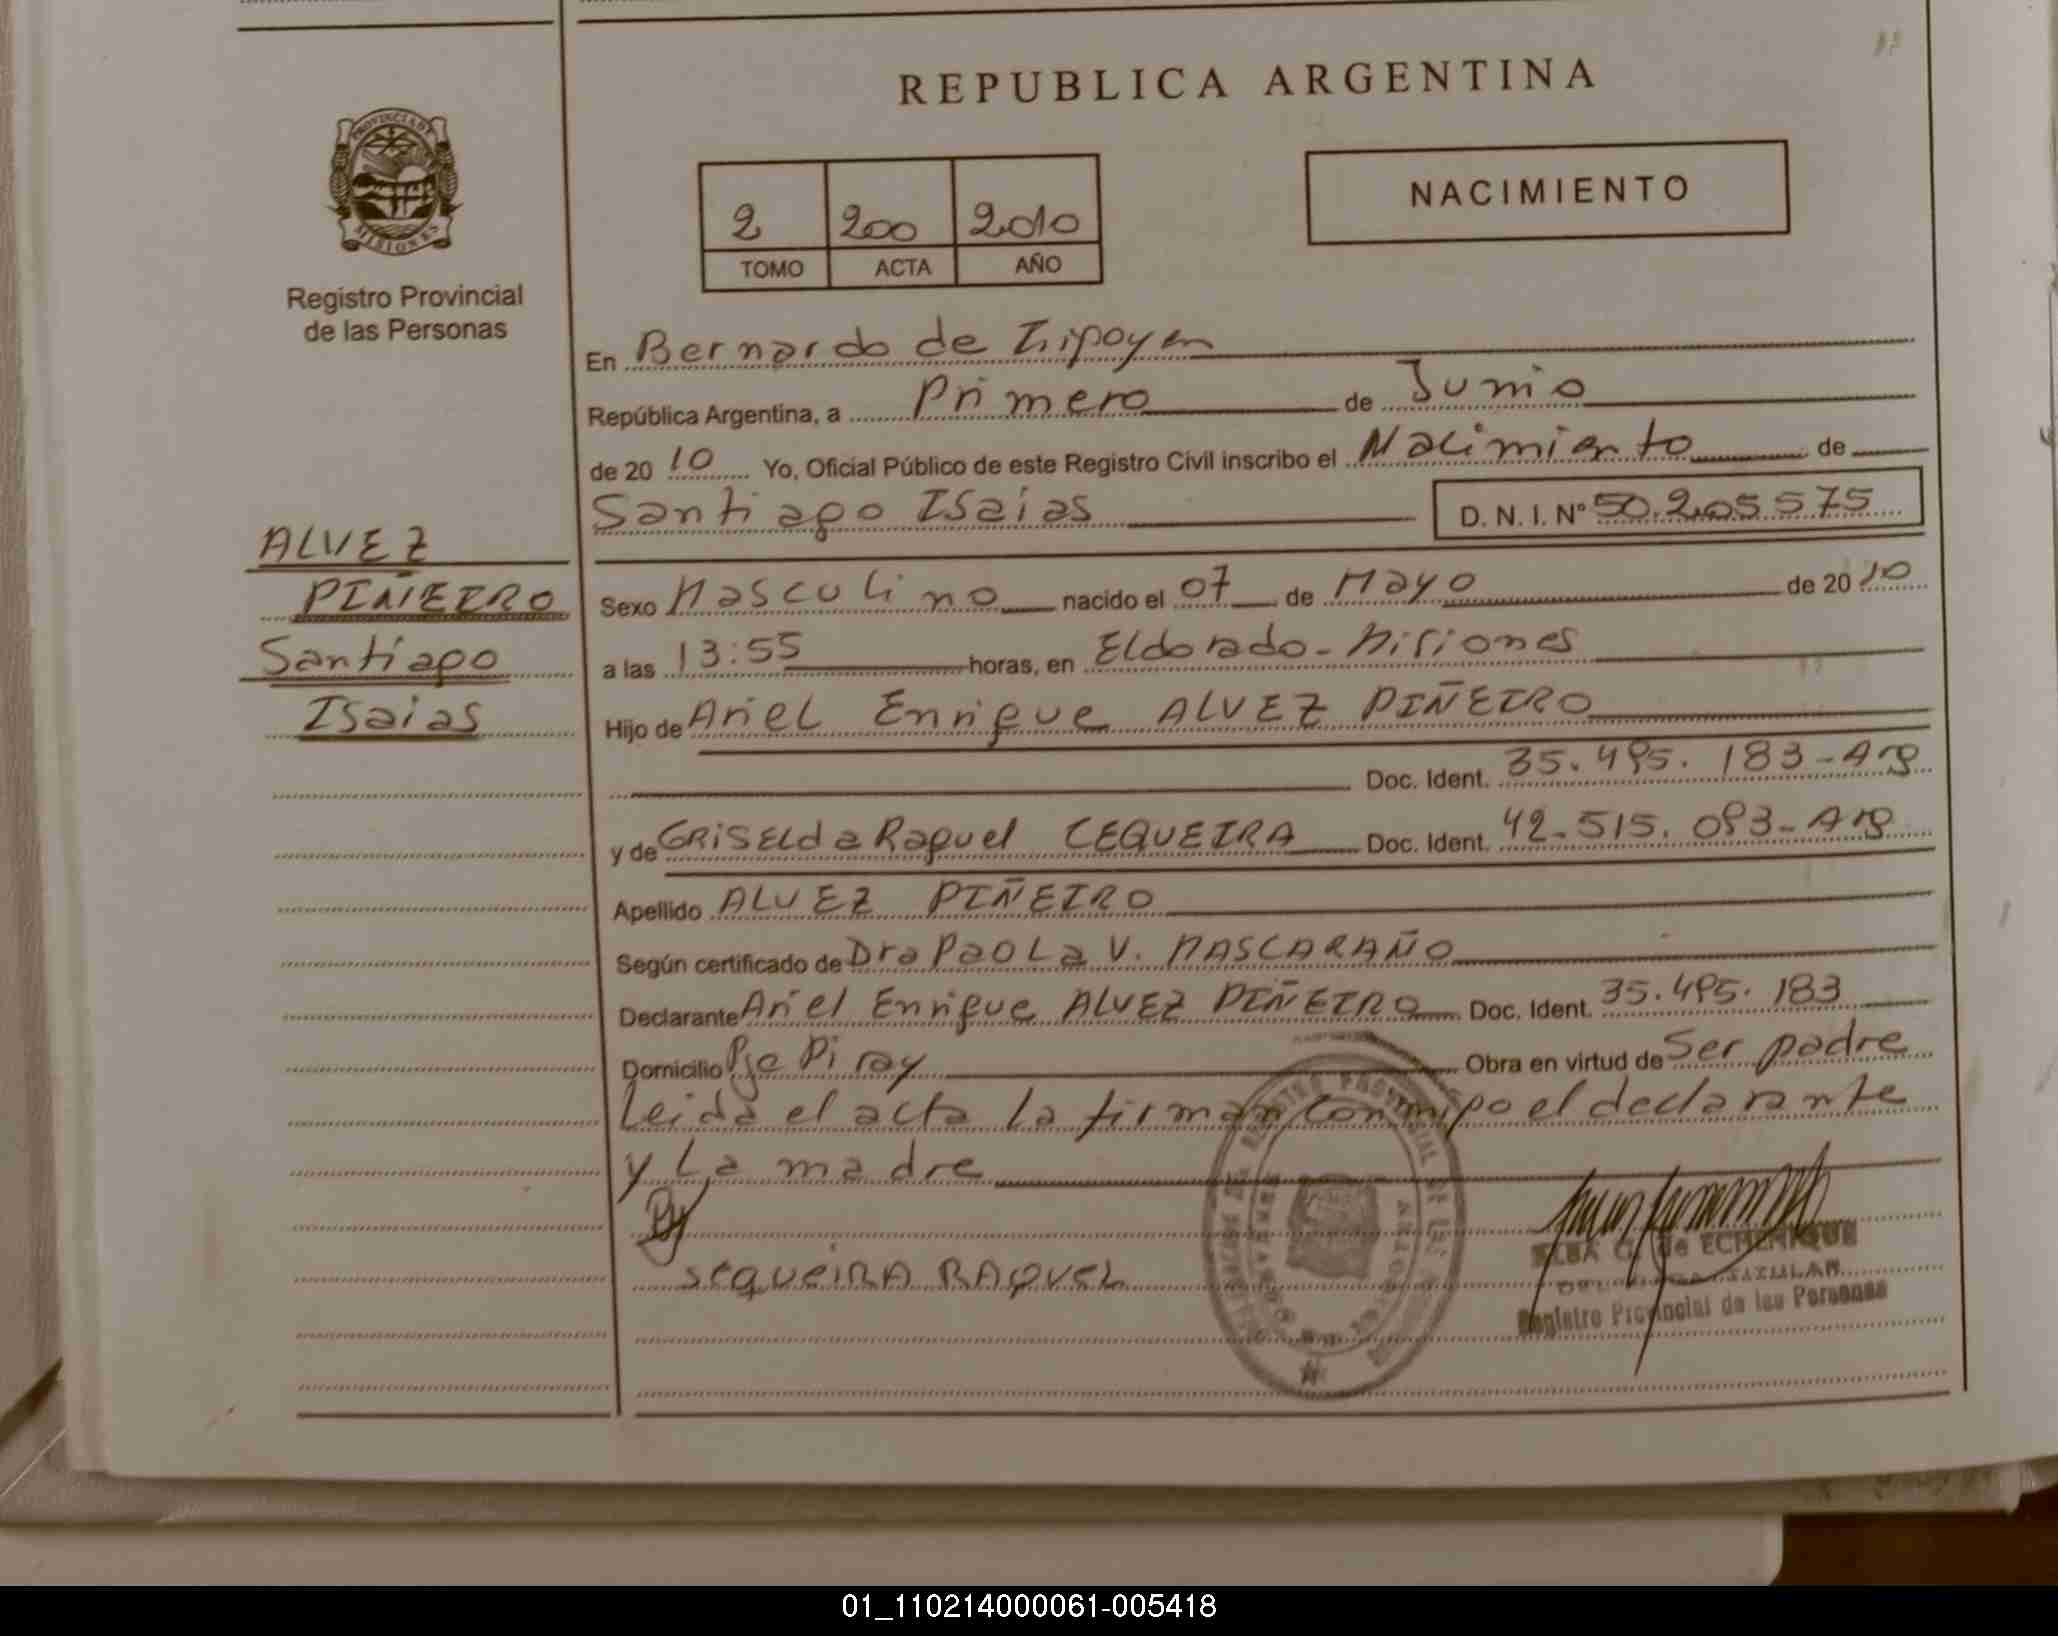 REPUBLICA ARGENTINA
PROVINCIA DE
MISIONES
Registro Provincial
de las Personas
2 200 2010
TOMO ACTA AÑO
NACIMIENTO
En Bernardo de Irigoyen
República Argentina, a Primero de Junio
de 2010 Yo, Oficial Público de este Registro Civil inscribo el Nacimiento de
Santiago Isaias D. N. I. Nº 50.205.575
ALVEZ
PIÑEIRO
Santiago
Isaias
Sexo Masculino nacido el 07 de Mayo de 2010
a las 13:55 horas, en Eldorado - Misiones
Hijo de Ariel Enrique ALVEZ PIÑEIRO
Doc. Ident. 35.495.183-Arg
y de GRISELda Raquel CEQUEIRA Doc. Ident. 42-515.093-Arg
Apellido ALVEZ PIÑEIRO
Según certificado de Dra Paola V. MASCARAÑO
Declarante Ariel Enrique ALVEZ PIÑEIRO Doc. Ident. 35.495.183
Domicilio Pje Piray Obra en virtud de Ser padre
Leida el acta la firman conmigo el declarante
y La madre
SEQUEIRA RAQUEL
ELBA G. de ECHENIQUE
DELEGADA TITULAR
Registro Provincial de las Personas
01_110214000061-005418